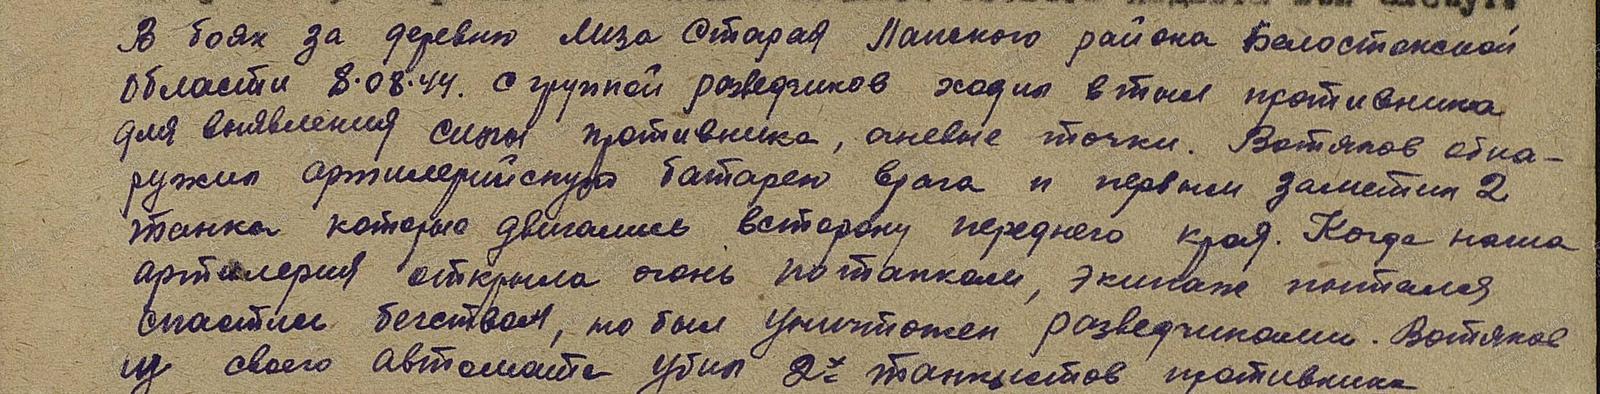 В боях за деревню Лиза Старая Лапского района Белостокской
области 8.08.44. с группой разведчиков ходил в тыл противника
для выявления силы противника, огневые точки. Вотяков обна-
ружил артилерийскую батарею врага и первым заметил 2
танка которые двигались всторону переднего края. Когда наша
артилерия открыла огонь по танкам, экипаж пытался
спастись бегством, но был уничтожен разведчиками. Вотяков
из своего автомата убил 2х танкистов противника